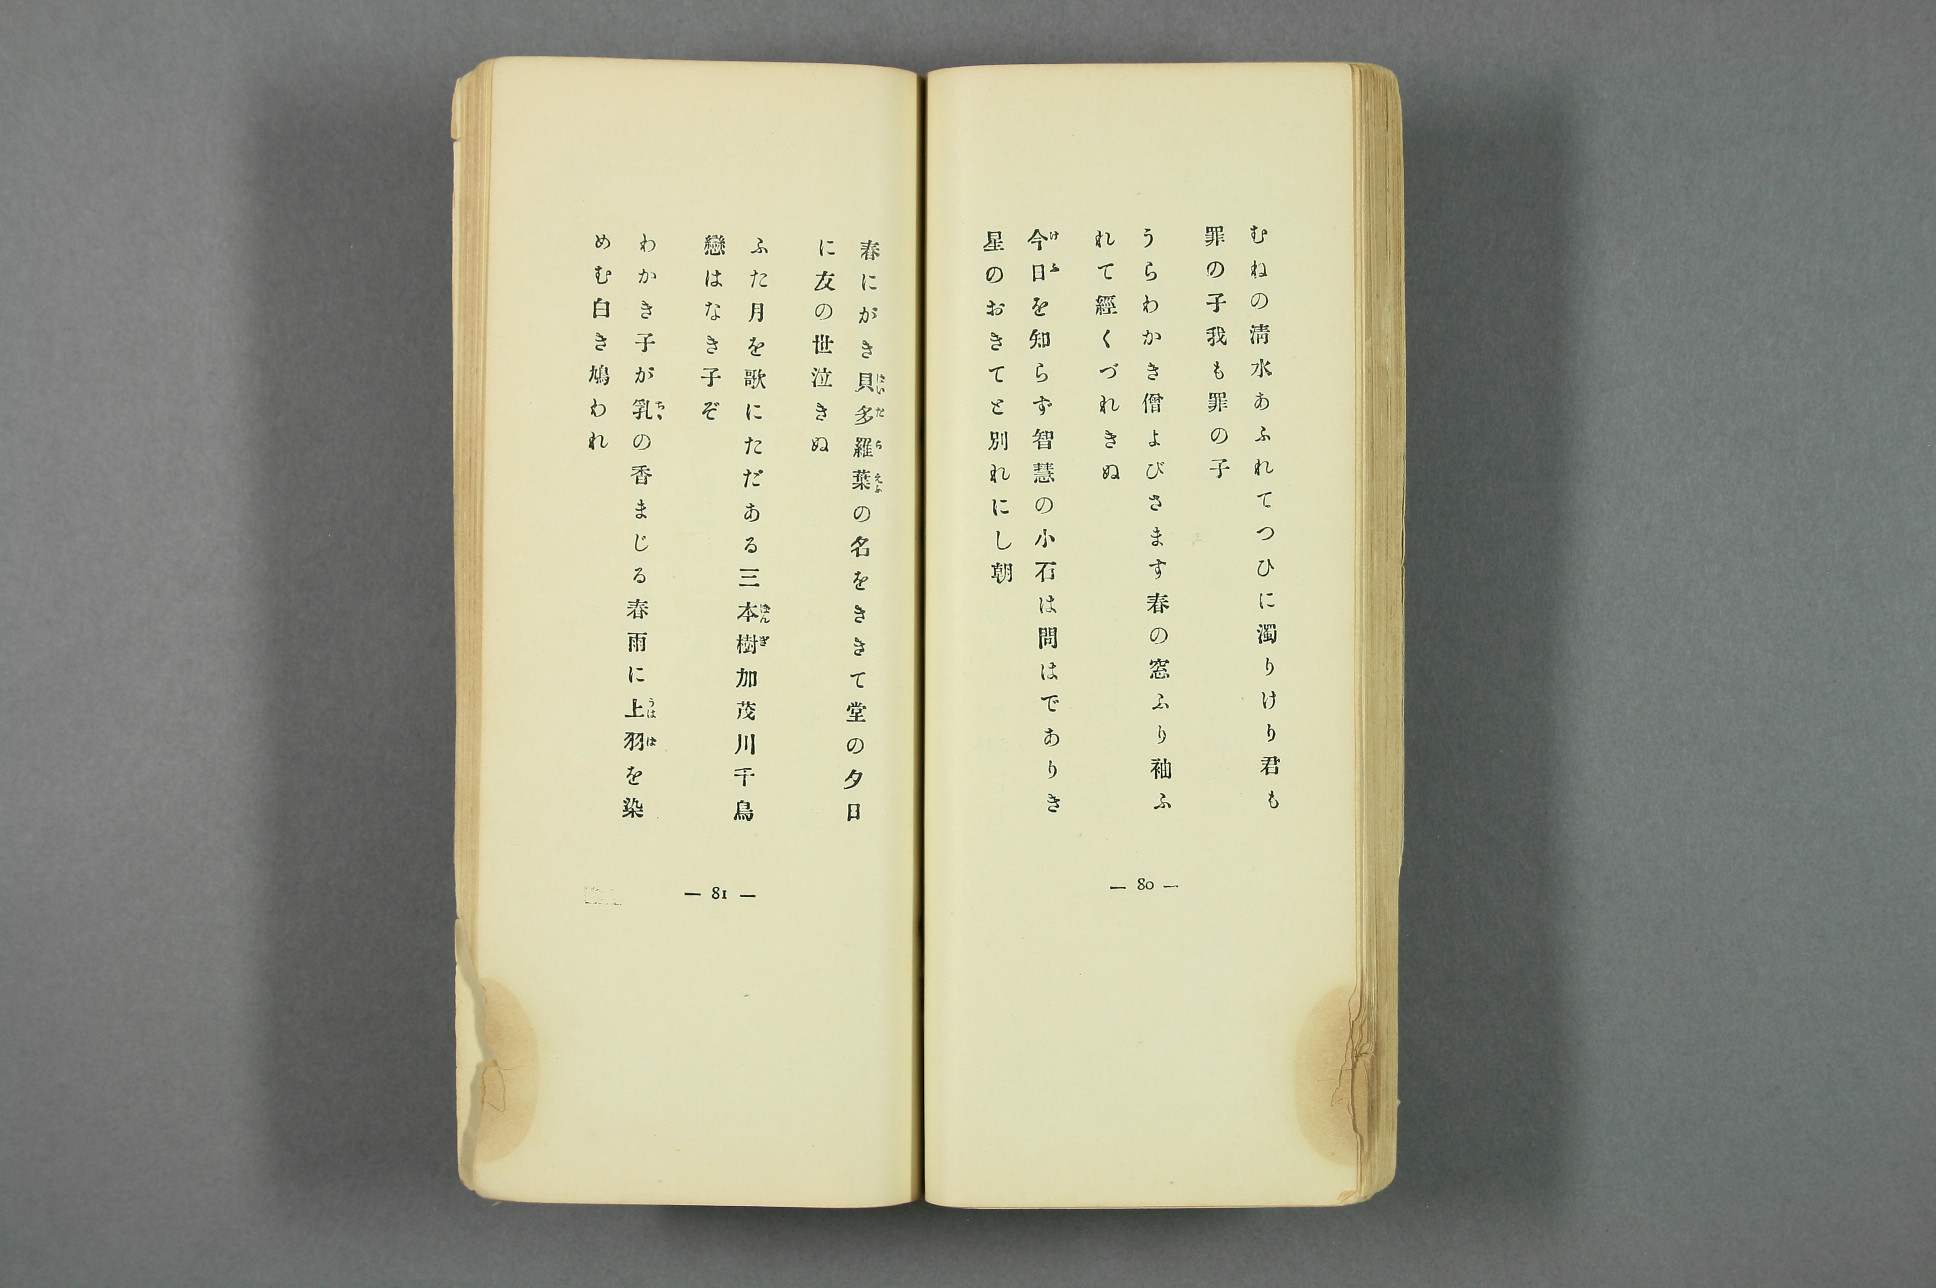 むねの清水あふれてつひに濁りけり君も
罪の子我も罪の子
うらわかき僧よびさます春の窓ふり袖ふ
れて經くづれきぬ
今日を知らず智慧の小石は問はでありき
星のおきてと別れにし朝
— 80 —
春にがき貝多羅葉の名をききて堂の夕日
に友の世泣きぬ
ふた月を歌にただある三本樹加茂川千鳥
戀はなき子ぞ
わかき子が乳の香まじる春雨に上羽を染
めむ白き鳩われ
— 81 —